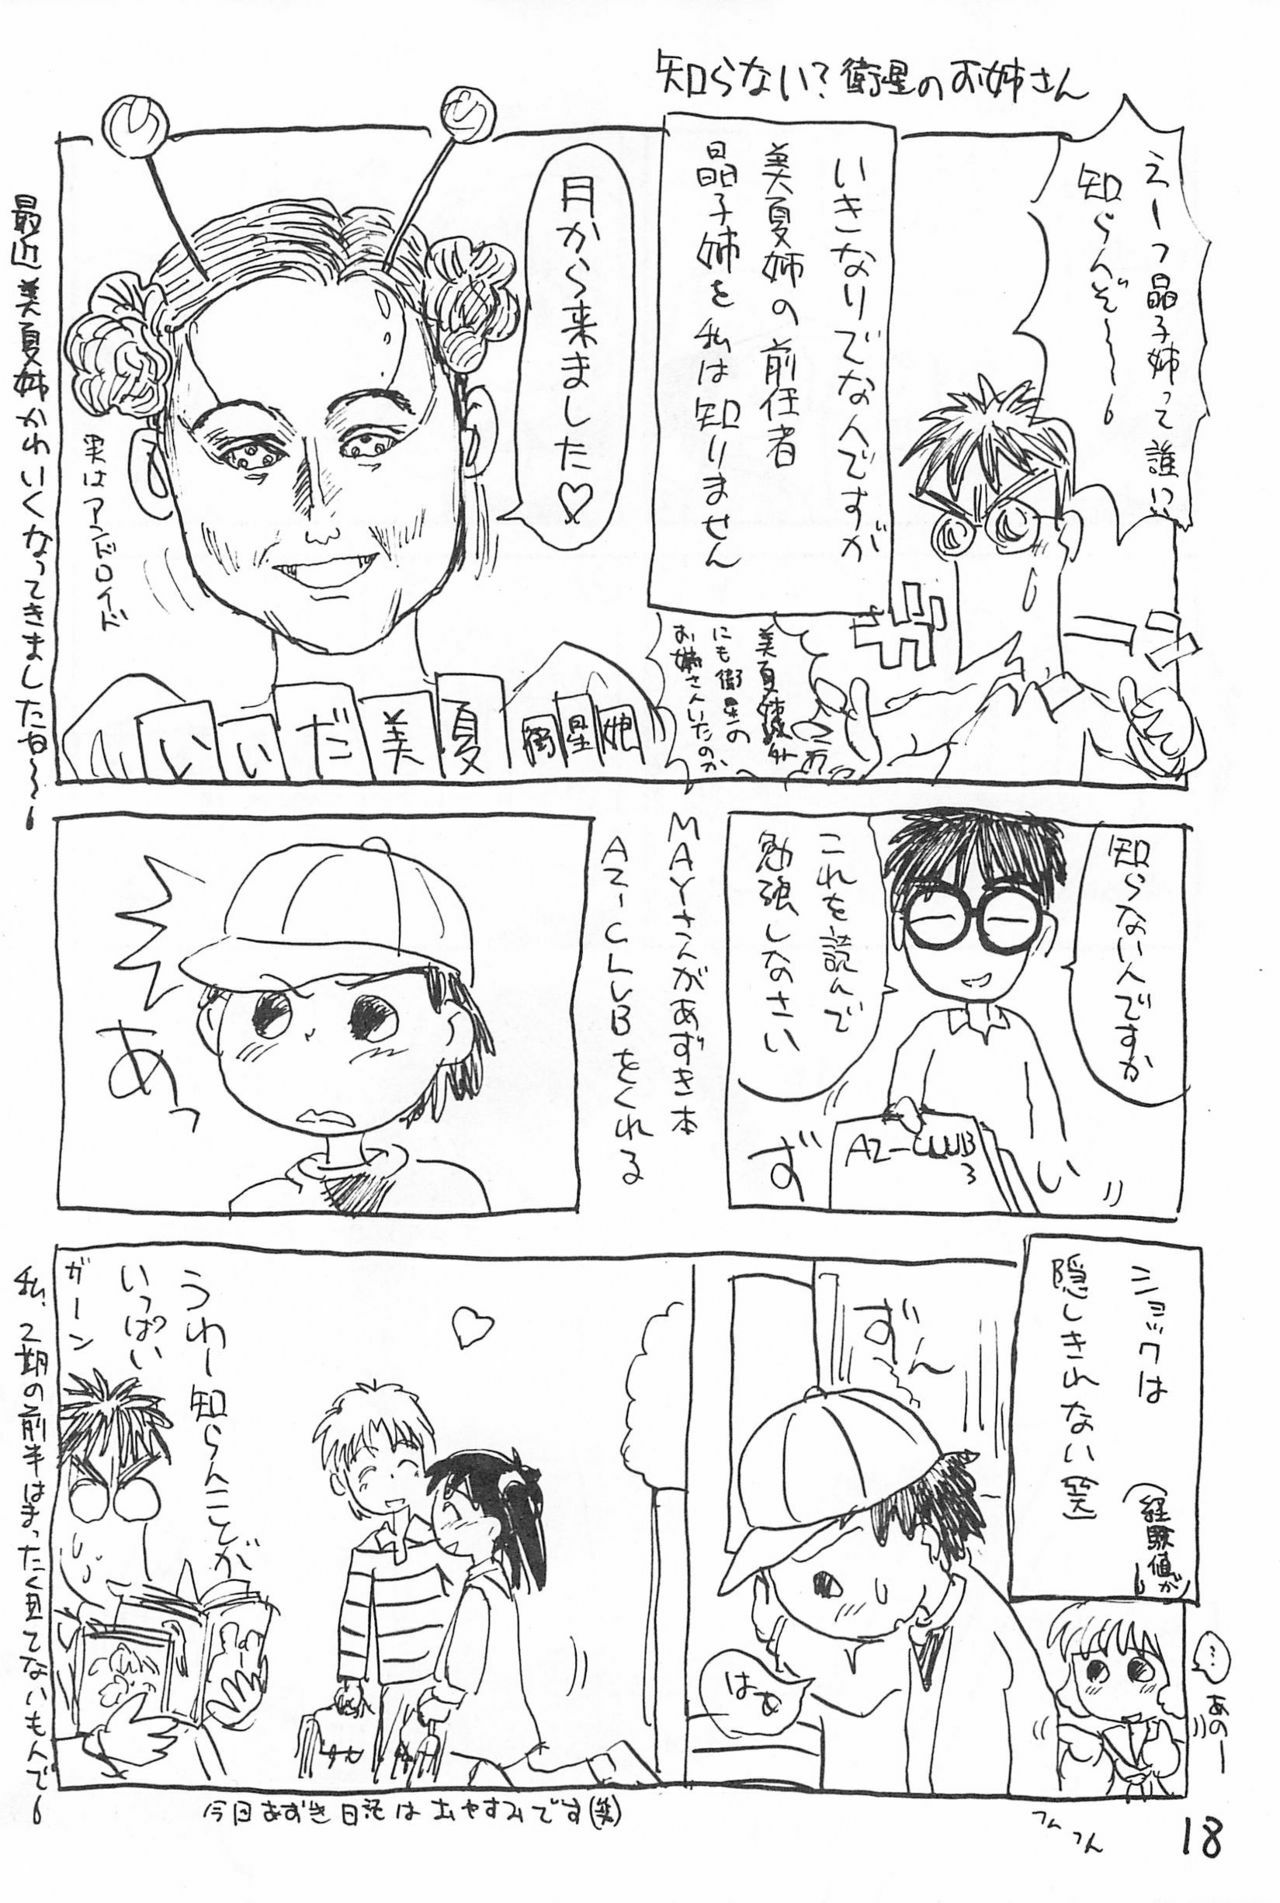 知らない?衛星のお姉さん
えーっ晶子姉って誰い
知らんぞ〜〜
ガ
ーン
いきなりでなんですが
美夏姉の前任者
晶子姉を私は知りません
美夏姉以外
にも衛星の
お姉さんいたのか
月から来ました♡
実はアンドロイド
いいだ美夏
衛星娘
最近美夏姉かわいくなってきましたね〜〜
知らないんですか
これを読んで
勉強しなさい
AZ-CLUB
3
ずい
MAYさんがあずき本
AZ-CLUBをくれる
あっ
ショックは
隠しきれない(笑)
(経験値が)
ずーん
はぁ
…
あのー
うわー知らんことが
いっぱい
ガーン
私、2期の前半はまったく見てないもんで
今回あずき日記はおやすみです(笑)
ふんふん
18